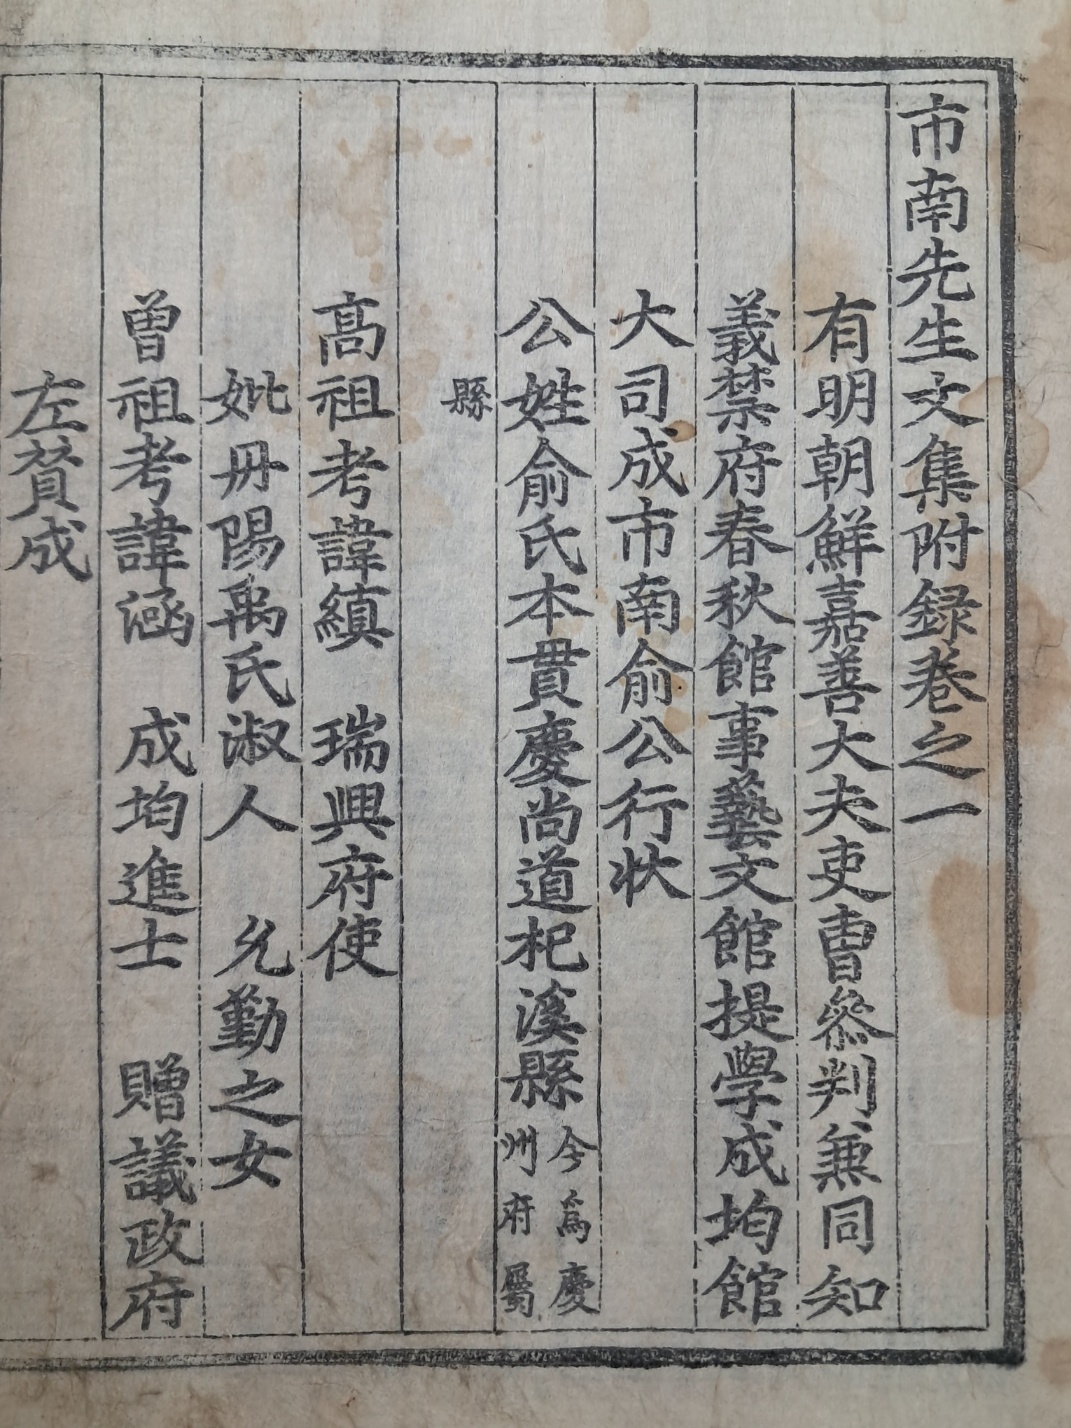 市南先生文集附録卷之一
有明朝鮮嘉善大夫吏曺叅判兼同知
義禁府春秋館事藝文館提學成均館
大司成市南俞公行狀
公姓俞氏本貫慶尚道杞溪縣今爲慶州府屬
縣
高祖考諱縝 瑞興府使
妣丹陽禹氏淑人 允勤之女
曾祖考諱涵 成均進士 贈議政府
左贊成